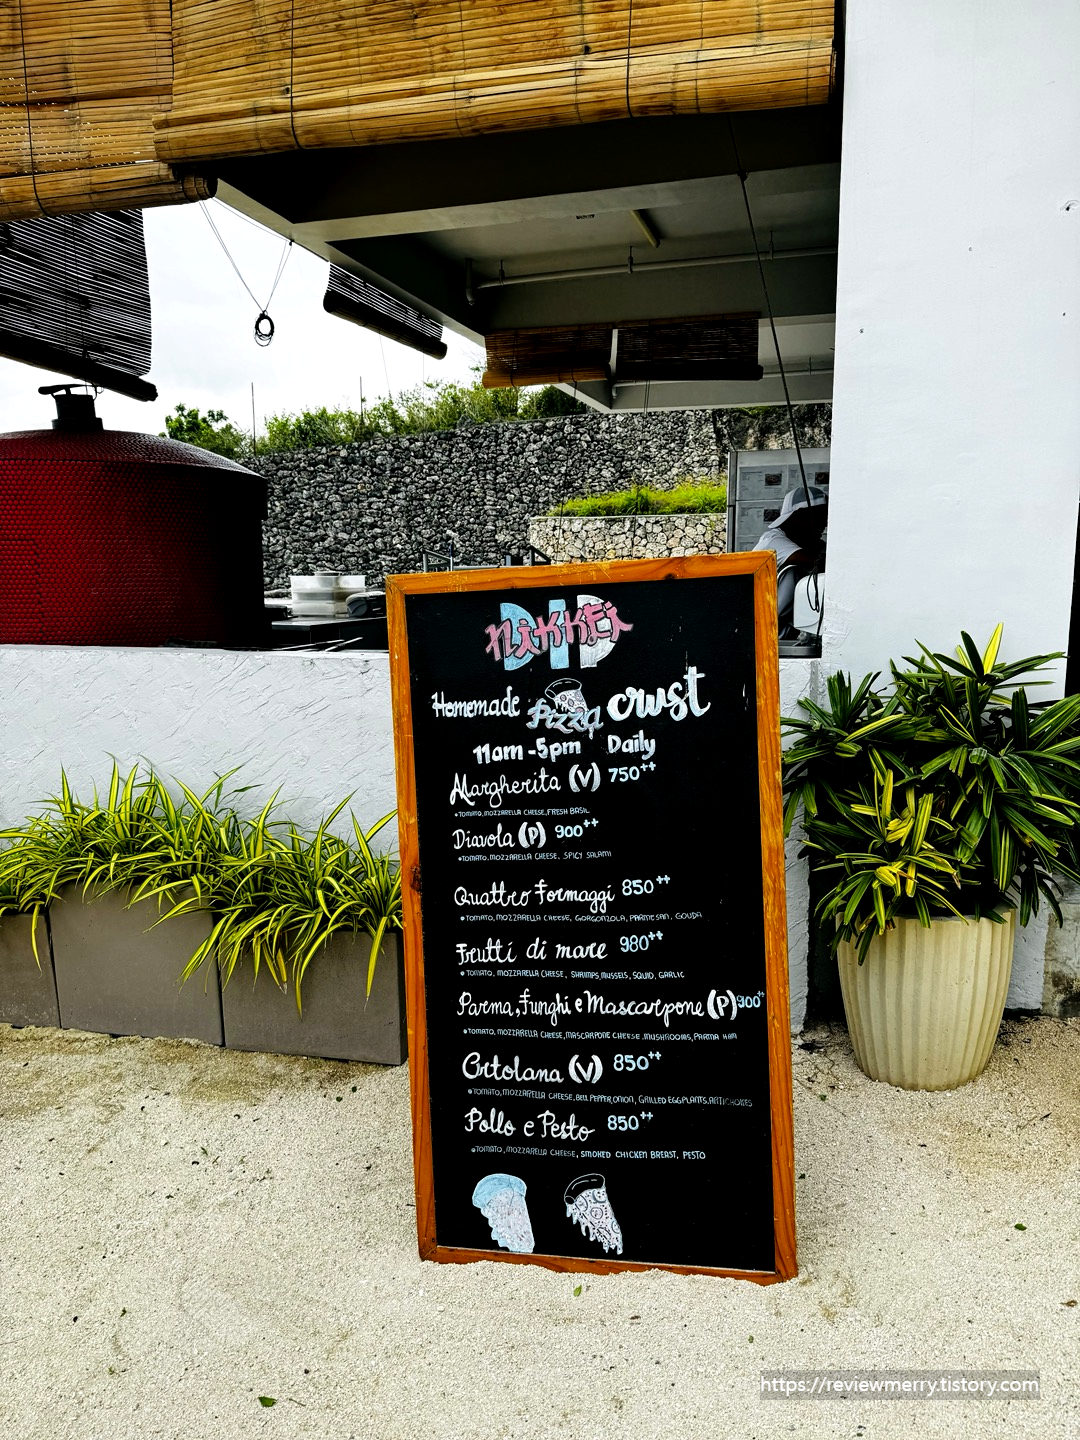 DIP
nikkei
Homemade Pizza crust
11am - 5pm Daily
Margherita (V) 750++
• TOMATO, MOZZARELLA CHEESE, FRESH BASIL
Diavola (P) 900++
• TOMATO, MOZZARELLA CHEESE, SPICY SALAMI
Quattro Formaggi 850++
• TOMATO, MOZZARELLA CHEESE, GORGONZOLA, PARMESAN, GOUDA
Frutti di mare 980++
• TOMATO, MOZZARELLA CHEESE, SHRIMPS, MUSSELS, SQUID, GARLIC
Parma, Funghi e Mascarpone (P) 900++
• TOMATO, MOZZARELLA CHEESE, MASCARPONE CHEESE, MUSHROOMS, PARMA HAM
Ortolana (V) 850++
• TOMATO, MOZZARELLA CHEESE, BELL PEPPER, ONION, GRILLED EGGPLANTS, ARTICHOKES
Pollo e Pesto 850++
• TOMATO, MOZZARELLA CHEESE, SMOKED CHICKEN BREAST, PESTO
https://reviewmerry.tistory.com